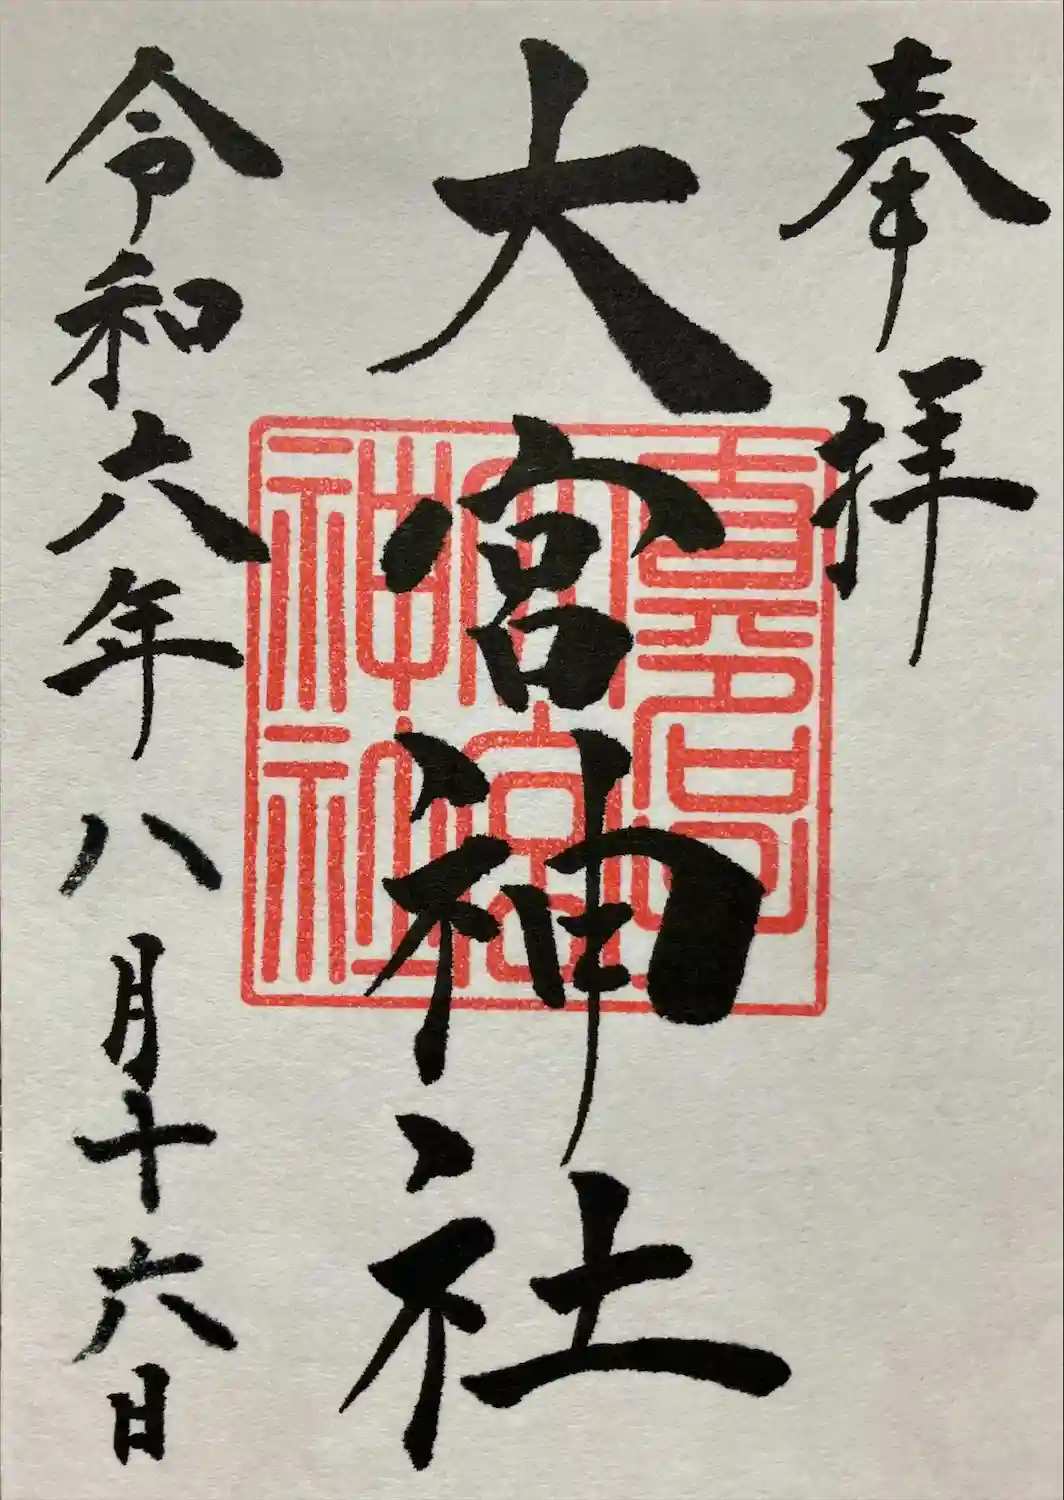 奉拝
大宮神社
令和六年八月十六日